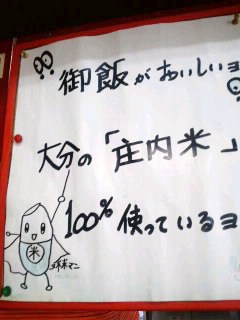 御飯がおいしいヨ
大分の「庄内米」
100%使っているヨ
米